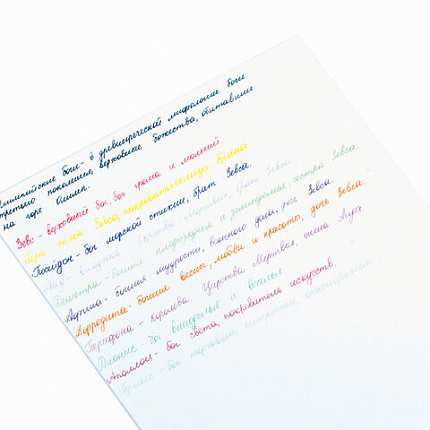 Олимпийские боги - в древнегреческой мифологии боги
третьего поколения, верховные божества, обитавшие
на горе Олимп.
Зевс - верховный бог, бог грома и молний.
Гера - жена Зевса, покровительница брака
Посейдон - бог морской стихии, брат Зевса.
Аид - владыка Царства мёртвых, брат Зевса
Деметра - богиня плодородия и земледелия, сестра Зевса.
Афина - богиня мудрости, военного дела, дочь Зевса.
Афродита - богиня весны, любви и красоты, дочь Зевса.
Персефона - королева Царства Мёртвых, жена Аида.
Дионис - бог виноделия и веселья
Аполлон - бог света, покровитель искусств.
Гермес - бог торговли, хитрости, красноречия.